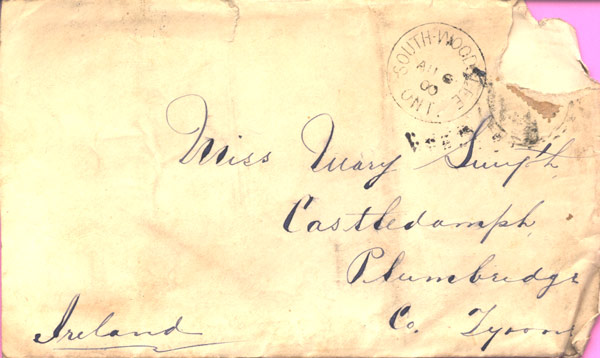 SOUTH-WOODSLEE
AU 6
00
ONT.
Miss Mary Smyth
Castledamph
Plumbridge
Co. Tyrone
Ireland